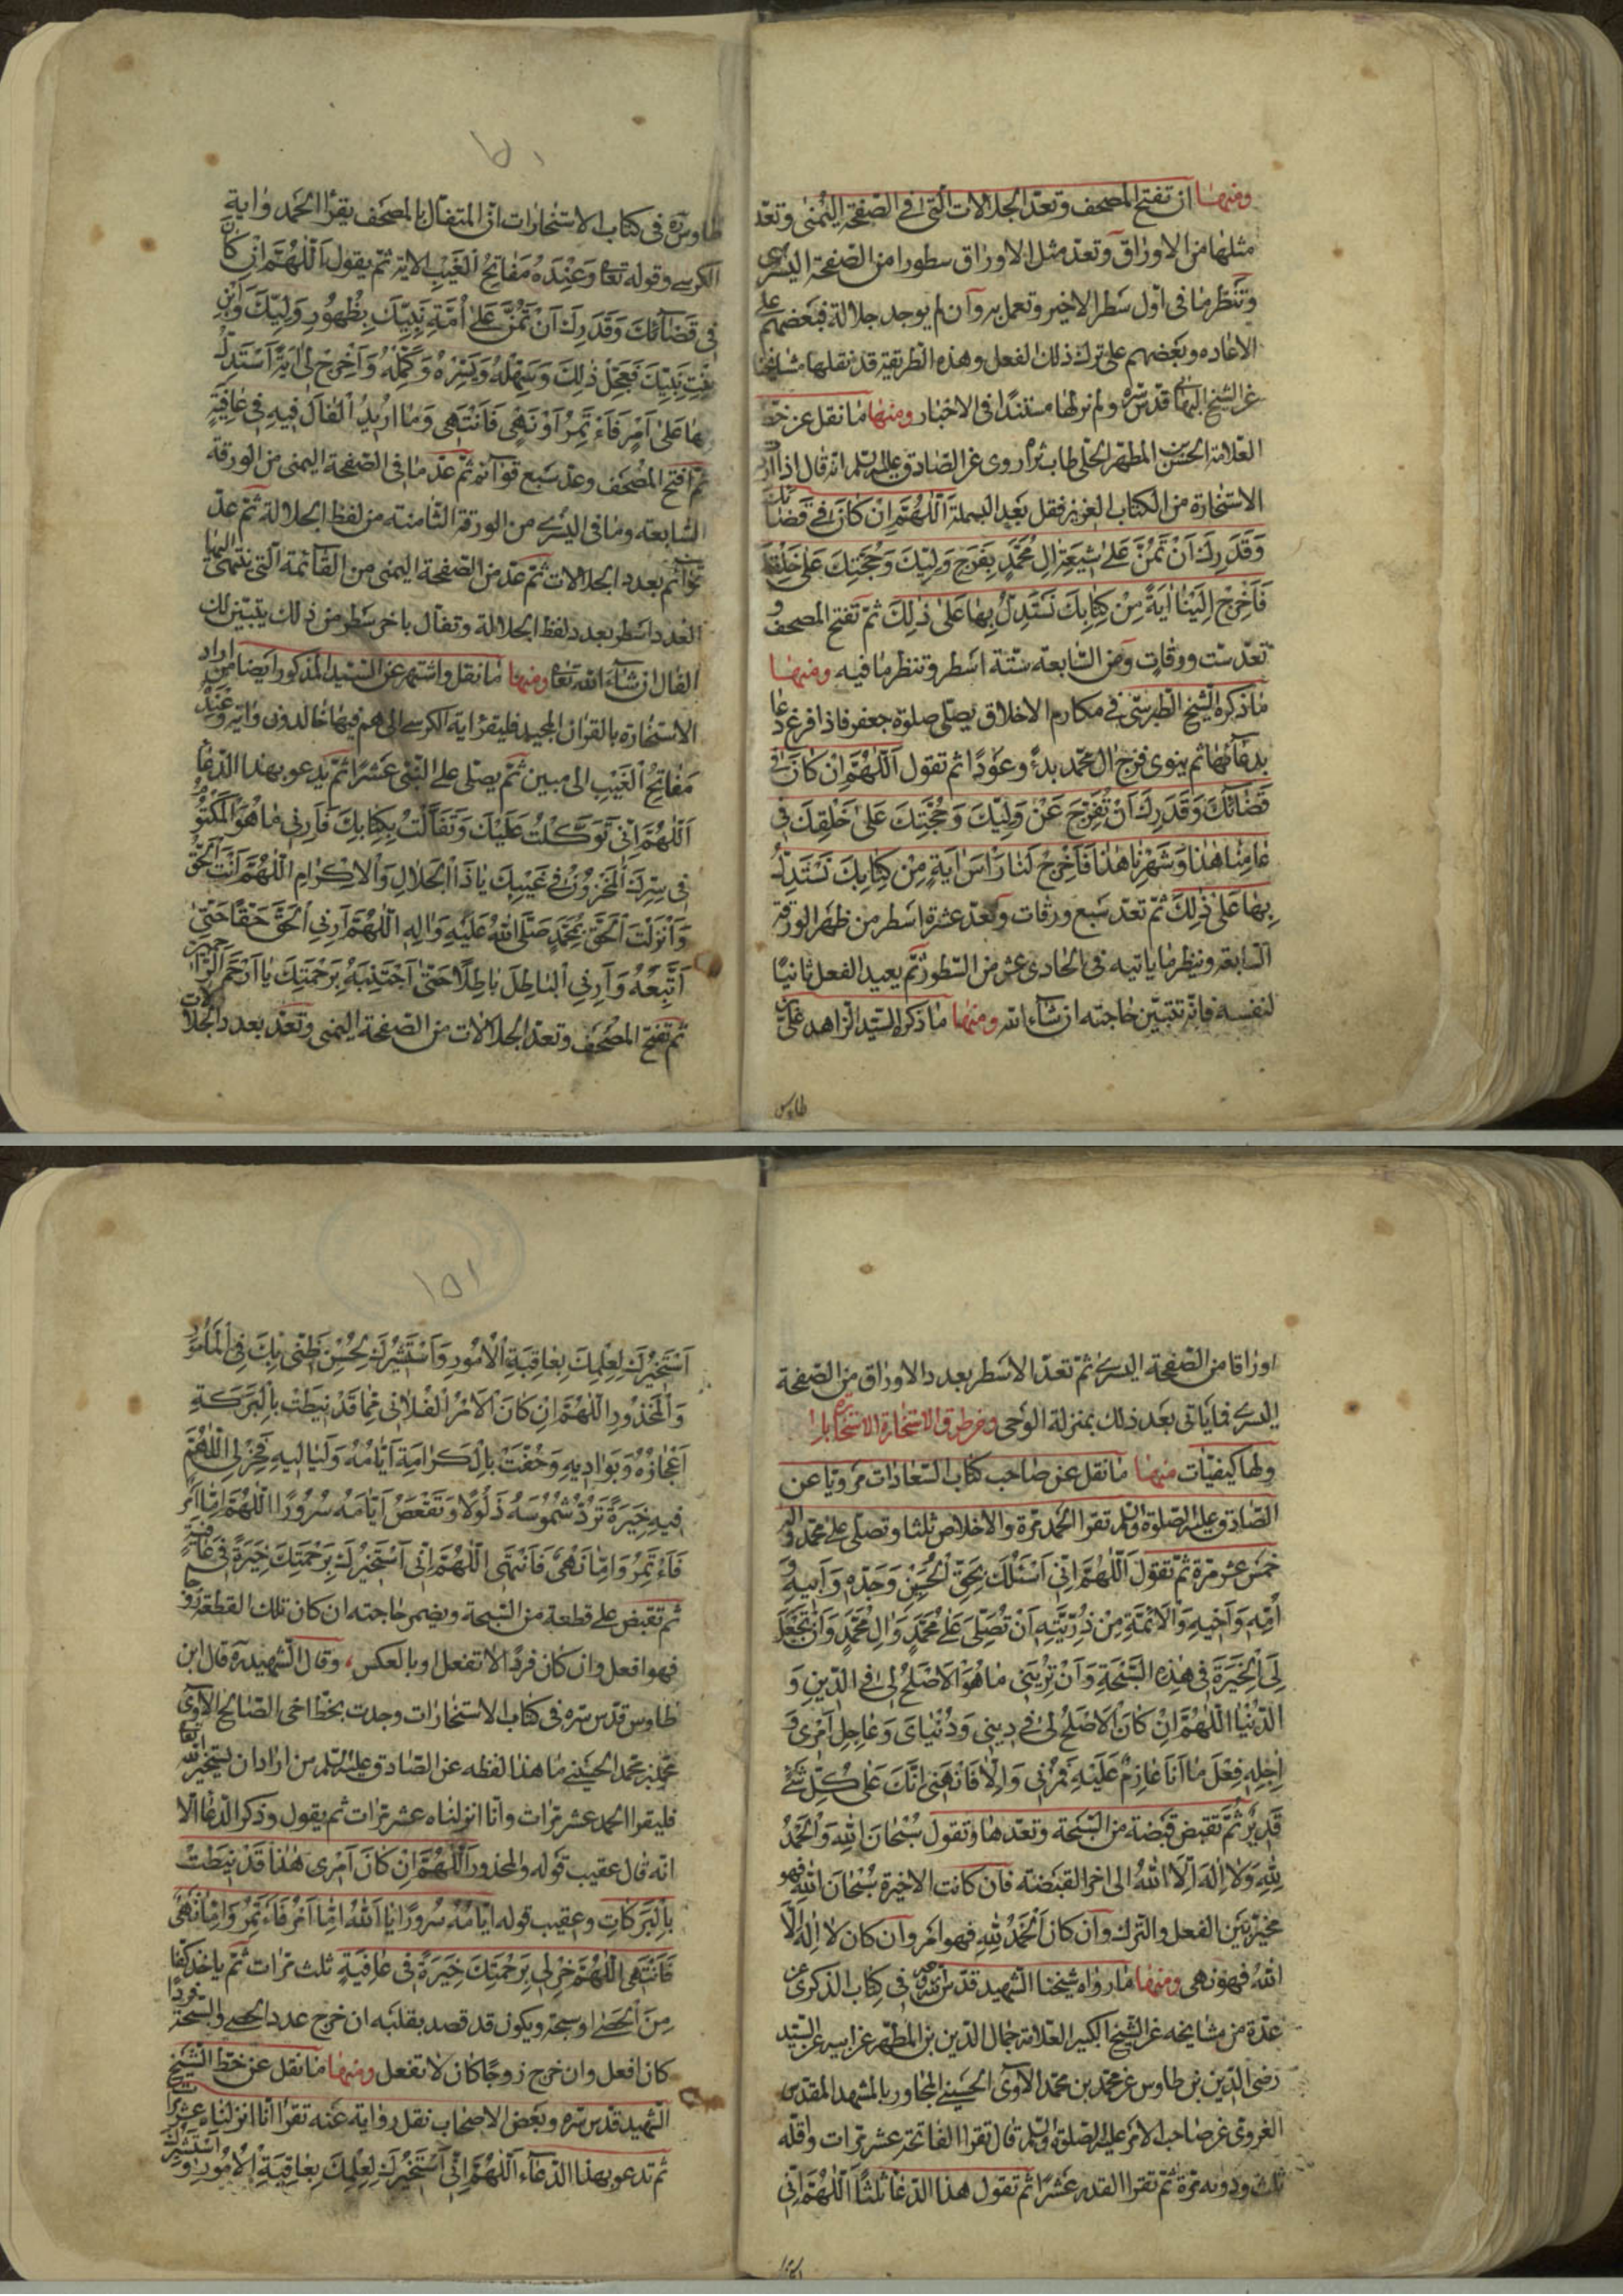 ومنها ان تفتح المصحف وتعدّ الجلالات التي في الصّفحة اليُمنى وتعدّ
مثلها من الاوراق وتعدّ مثل الاوراق سطورا من الصّفحة اليسرى
وتنظر ما في اوّل سَطر الاخير وتعمل به وان لم يوجد جلالة فبعضهم على
الاعاده وبعضهم على ترك ذلك الفعل وهذه الطريقة قد نقلها مشايخنا
عن الشيخ البهائي قدس سرّه ولم نر لها مستندًا في الاخبار ومنها ما نقل عن خط
العلامة الحسن بن المطهر الحلي طاب ثراه روى عن الصّادق عليه السلم انه قال اذا اردت
الاستخارة من الكتاب العزيز فقل بَعد البسملة اَللّهُمَّ اِنْ كانَ في قَضائِكَ
وَقَدَرِكَ اَنْ تَمُنَّ عَلى شيعَةِ الِ مُحَمَّدٍ بِفَرَجِ وَليِّكَ وَحُجَّتِكَ عَلى خَلْقِكَ
فَاَخْرِجْ اِلَيْنا ايَةً مِنْ كِتابِكَ نَسْتَدِلُّ بِها عَلى ذلِكَ ثمّ تَفتح المصحف و
تعدّ ست ورقات ومن السّابعة ستّة اسطر وتنظر ما فيه ومنها
ما ذكره الشيخ الطبرسي في مكارم الاخلاق يصلّي صلوة جعفر فاذا فرغ دعا
بدعائها ثم ينوى فرج ال محمّد بدءً وعودًا ثم تقول اَللّهُمَّ اِنْ كانَ في
قَضائِكَ وَقَدَرِكَ اَنْ تُفَرِّجَ عَنْ وَلِيِّكَ وَحُجَّتِكَ عَلى خَلْقِكَ في
عامِنا هذا وَشَهْرِنا هذا فَاَخْرِجْ لَنا رَأْسَ ايَةٍ مِنْ كِتابِكَ نَسْتَدِلُّ
بِها عَلى ذلِكَ ثمّ تعدّ سَبع ورقات وتعدّ عشرة اسطر من ظهر الورقة
السّابعة وينظر ما ياتيه في الحادى عشر من السّطور ثمّ يعيد الفعل ثانيًا
لنفسه فانّه تتبيّن حاجته ان شاء الله ومنها ما ذكره السّيّد الزاهد علىّ بن
طاوس
طاوس ره في كتاب الاستخارات انّ المتفأل بالمصحف يقرأ الحمد واية
الكرسي وقوله تعا وَعِنْدَهُ مَفاتِحُ الْغَيْبِ الاية ثمّ يقول اَللّهُمَّ اِنْ كانَ
في قَضائِكَ وَقَدَرِكَ اَنْ تَمُنَّ عَلى اُمَّةِ نَبِيِّكَ بِظُهُورِ وَلِيِّكَ وَابْنِ
بِنْتِ نَبِيِّكَ فَعَجِّلْ ذلِكَ وَسَهِّلْهُ وَيَسِّرْهُ وَكَمِّلْهُ وَاَخْرِجْ لي ايَةً اَسْتَدِلُّ
بِها عَلى اَمْرٍ فَاَئْتَمِرُ اَوْ نَهْيٍ فَاَنْتَهي وَما اُريدُ الْفالَ فيهِ في عافِيَةٍ
ثمّ افتح المصحف وعدّ سبع قوائم ثمّ عدّ ما في الصّفحة اليمنى من الورقة
السّابعة وما في اليسرى من الورقة الثامنة من لفظ الجلالة ثمّ عدّ
قوائم بعدد الجلالات ثمّ عدّ من الصّفحة اليمنى من القائمة الّتي ينتهى اليها
العدد اسطر بعدد لفظ الجلالة وتفأل باخر سطر من ذلك يتبيّن لك
الفال ان شاء الله تعا ومنها ما نقل واشتهر عن السّيّد المذكور ايضا من اراد
الاستخارة بالقران المجيد فليقرء اية الكرسي الى هم فيها خالدون واية وَعِنْدَهُ
مَفاتِحُ الْغَيْبِ الى مبين ثمّ يصلّى على النّبى عَشرًا ثمّ يدعو بهذا الدّعا
اَللّهُمَّ اِنّي تَوَكَّلْتُ عَلَيْكَ وَتَفَأَّلْتُ بِكِتابِكَ فَاَرِني ما هُوَ الْمَكْتُومُ
في سِرِّكَ الْمَخْزُونِ في غَيْبِكَ يا ذَا الْجَلالِ وَالْاِكْرامِ اَللّهُمَّ اَنْتَ الْحَقُّ
وَاَنْزَلْتَ الْحَقَّ بِمُحَمَّدٍ صَلَّى اللهُ عَلَيْهِ وَالِهِ اَللّهُمَّ اَرِني الْحَقَّ حَقًّا حَتّى
اَتَّبِعَهُ وَاَرِني الْباطِلَ باطِلًا حَتّى اَجْتَنِبَهُ بِرَحْمَتِكَ يا اَرْحَمَ الرّاحِمين
ثمّ تفتح المصحف وتعدّ الجلالات من الصّفحة اليمنى وتعدّ بعدد الجلالات
اوراقا من الصّفحة اليسرى ثمّ تعدّ الاسطر بعدد الاوراق من الصّفحة
اليسرى فما يأتى بعد ذلك بمنزلة الوَحى ومن طرق الاستخارة الاستخارة بالسبحة
ولها كيفيّات منها ما نقل عن صاحب كتاب السّعادات مرويّا عن
الصّادق عليه الصلوة والسلم تقرا الحمد مرّة والاخلاص ثلثا وتصلّى على محمّد واله
خمس عشر مرّة ثمّ تقول اَللّهُمَّ اِنّي اَسْئَلُكَ بِحَقِّ الْحُسَيْنِ وَجَدِّهِ وَاَبيهِ وَ
اُمِّهِ وَاَخيهِ وَالْاَئِمَّةِ مِنْ ذُرِّيَّتِهِ اَنْ تُصَلِّيَ عَلى مُحَمَّدٍ وَالِ مُحَمَّدٍ وَاَنْ تَجْعَلَ
لِيَ الْخِيَرَةَ في هذِهِ السُّبْحَةِ وَاَنْ تُرِيَني ما هُوَ الْاَصْلَحُ لي فِي الدّينِ وَ
الدُّنْيا اَللّهُمَّ اِنْ كانَ الْاَصْلَحُ لي في ديني وَدُنْيايَ وَعاجِلِ اَمْرى وَ
اجِلِهِ فِعْلَ ما اَنَا عازِمٌ عَلَيْهِ فَمُرْني وَاِلّا فَانْهَني اِنَّكَ عَلى كُلِّ شَيْءٍ
قَديرٌ ثمّ تقبض قبضة من السّبحة وتعدّها وتقول سُبْحانَ اللهِ وَالْحَمْدُ
لِلّهِ وَلا اِلهَ اِلَّا اللهُ الى اخر القبضة فان كانت الاخيرة سُبْحانَ اللهِ فهو
مخيّر بين الفعل والترك وان كان اَلْحَمْدُ لِلّهِ فهو امر وان كان لا اِلهَ اِلَّا
اللهُ فهو نهى ومنها ما رواه شيخنا الشّهيد قدّس سرّه في كتاب الذكرى عن
عدّة من مشايخه عن الشيخ الكبير العلامة جمال الدّين بن المطهّر عن ابيه عن السّيّد
رضى الدّين بن طاوس عن محمّد بن محمّد الآوي الحسينى المجاور بالمشهد المقدّس
الغروى عن صاحب الامر عليه الصلوة والسلم قال تقرا الفاتحة عشر مرّات واقلّه
ثلث ودونه مرّة ثمّ تقرا القدر عَشرًا ثمّ تقول هذا الدّعا ثلثا اَللّهُمَّ اِنّي
اَسْتَخيرُكَ لِعِلْمِكَ بِعاقِبَةِ الْاُمُورِ وَاَسْتَشيرُكَ لِحُسْنِ ظَنّي بِكَ فِي الْمَأْمُولِ
وَالْمَحْذُورِ اَللّهُمَّ اِنْ كانَ الْاَمْرُ الْفُلاني مِمّا قَدْ نيطَتْ بِالْبَرَكَةِ
اَعْجازُهُ وَبَواديهِ وَحُفَّتْ بِالْكَرامَةِ اَيّامُهُ وَلَياليهِ فَخِرْ لي اَللّهُمَّ
فيهِ خِيَرَةً تَرُدُّ شَمُوسَهُ ذَلُولًا وَتَقْعَصُ اَيّامَهُ سُرُورًا اَللّهُمَّ اِمّا اَمْرٌ
فَاَئْتَمِرُ وَاِمّا نَهْيٌ فَاَنْتَهي اَللّهُمَّ اِنّي اَسْتَخيرُكَ بِرَحْمَتِكَ خِيَرَةً في عافِيَةٍ
ثم تقبض على قطعة من السّبحة ويضمر حاجته ان كان تلك القطعة زوجا
فهو افعل وان كان فردًا لا تفعل او بالعكس، وقال الشّهيد ره قال ابن
طاوس قدّس سرّه في كتاب الاستخارات وجدت بخطّ اخى الصّالح الآوي
محمّد بن محمّد الحسيني ما هذا لفظه عن الصّادق عليه السلم من اراد ان يستخير الله تعا
فليقرا الحمد عشر مرّات وانّا انزلناه عشر مرّات ثم يقول وذكر الدّعا الّا
انّه قال عقيب قوله والمحذور اَللّهُمَّ اِنْ كانَ اَمْرى هذا قَدْ نيطَتْ
بِالْبَرَكاتِ وعقيب قوله اَيّامُهُ سُرُورًا يا اَللهُ اِمّا اَمْرٌ فَاَئْتَمِرُ وَاِمّا نَهْيٌ
فَاَنْتَهي اَللّهُمَّ خِرْ لي بِرَحْمَتِكَ خِيَرَةً في عافِيَةٍ ثلث مرّات ثمّ ياخذ كفّا
مِنَ الحصى او سبحة ويكون قد قصد بقلبه ان خرج عدد الحصى والسّبحة فردًا
كان افعل وان خرج زوجًا كان لا تفعل ومنها ما نقل عن خطّ الشّيخ
الشّهيد قدّس سرّه وبعض الاصحاب نقل رواية عنه تقرا انّا انزلناه عشرًا
ثم تدعو بهذا الدّعاء اَللّهُمَّ اِنّي اَسْتَخيرُكَ لِعِلْمِكَ بِعاقِبَةِ الْاُمُورِ وَاَسْتَشيرُكَ